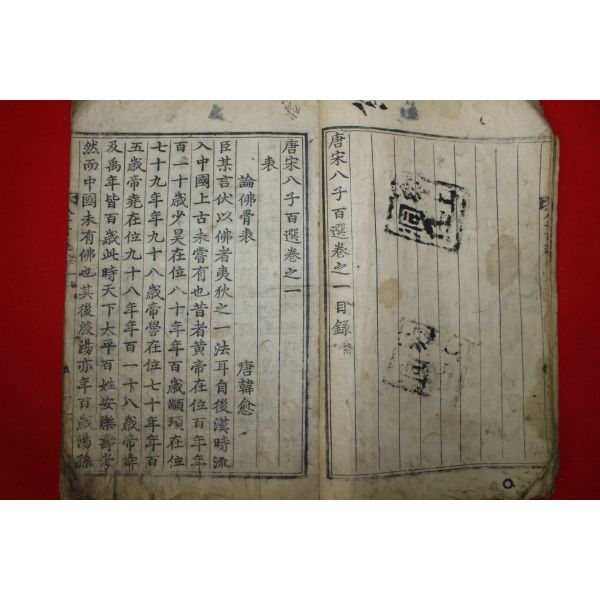 唐宋八子百選卷之一目錄 終
唐宋八子百選卷之一
表
論佛骨表
唐韓愈
臣某言伏以佛者夷狄之一法耳自後漢時流
入中國上古未嘗有也昔者黃帝在位百年年
百一十歲少昊在位八十年年百歲顓頊在位
七十九年年九十八歲帝嚳在位七十年年百
五歲帝堯在位九十八年年百一十八歲帝舜
及禹年皆百歲此時天下太平百姓安樂壽考
然而中國未有佛也其後殷湯亦年百歲湯孫